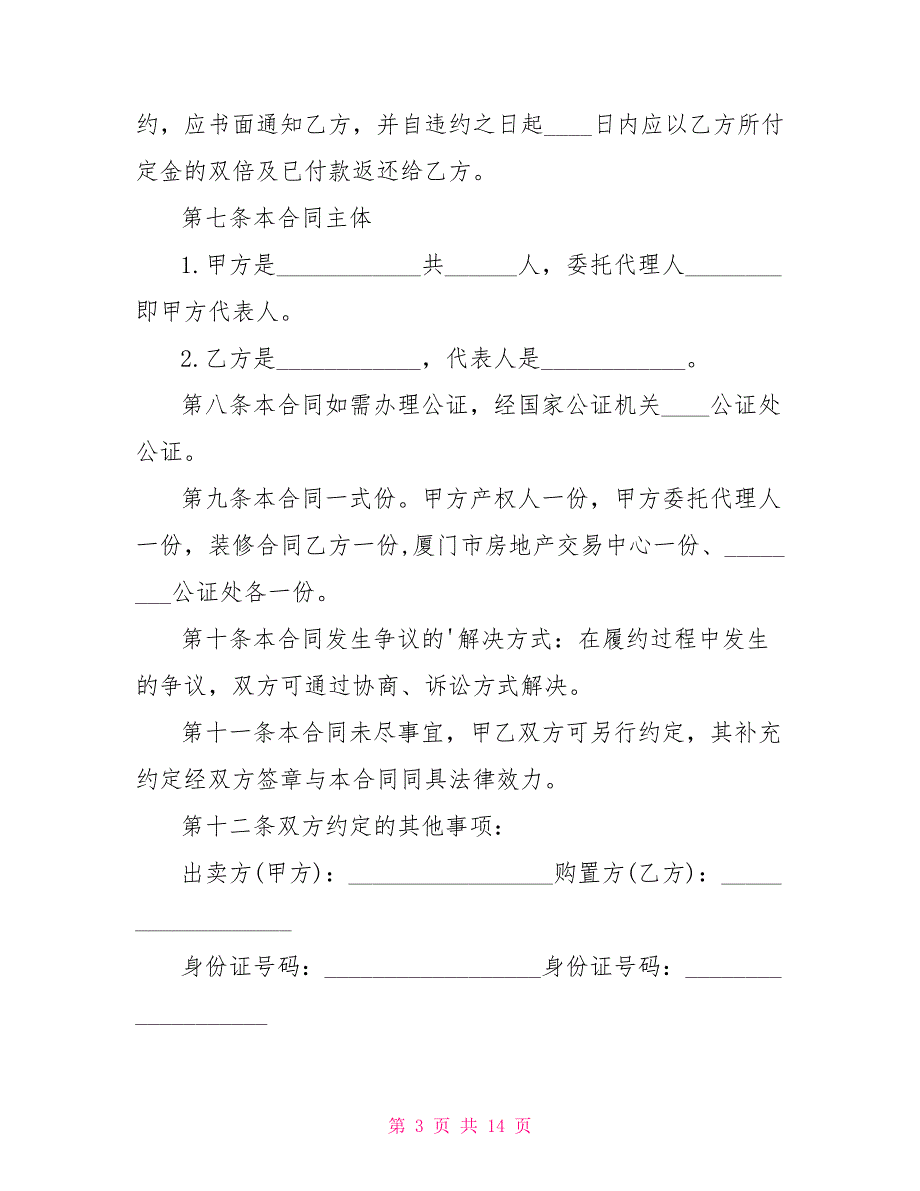 约，应书面通知乙方，并自违约之日起____日内应以乙方所付
定金的双倍及已付款返还给乙方。
第七条本合同主体
1.甲方是____________共______人，委托代理人________
即甲方代表人。
2.乙方是____________，代表人是____________。
第八条本合同如需办理公证，经国家公证机关____公证处
公证。
第九条本合同一式份。甲方产权人一份，甲方委托代理人
一份，装修合同乙方一份,厦门市房地产交易中心一份、_____
___公证处各一份。
第十条本合同发生争议的'解决方式：在履约过程中发生
的争议，双方可通过协商、诉讼方式解决。
第十一条本合同未尽事宜，甲乙双方可另行约定，其补充
约定经双方签章与本合同同具法律效力。
第十二条双方约定的其他事项：
出卖方(甲方)：_________________购置方(乙方)：_____
_____________
身份证号码：__________________身份证号码：________
___________
第 3 页 共 14 页